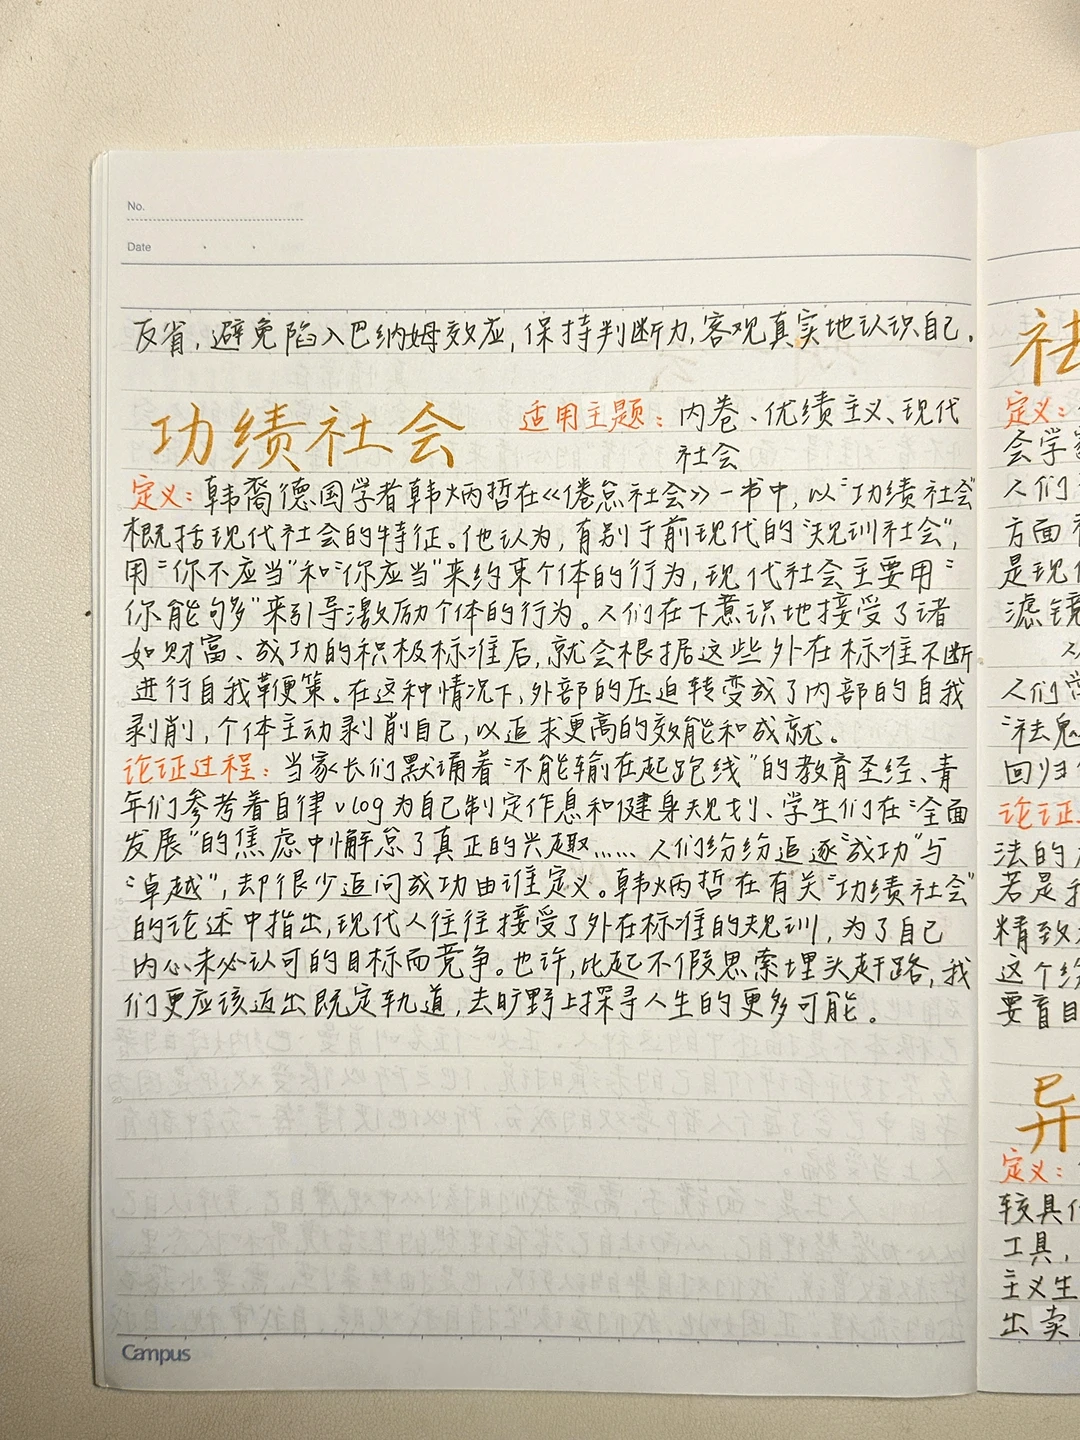 No.
Date
反省,避免陷入巴纳姆效应,保持判断力,客观真实地认识自己。
功绩社会
适用主题:内卷、优绩主义、现代
社会
定义:韩裔德国学者韩炳哲在《倦怠社会》一书中,以“功绩社会”
概括现代社会的特征。他认为,有别于前现代的“规训社会”,
用“你不应当”和“你应当”来约束个体的行为,现代社会主要用“
你能够”来引导激励个体的行为。人们在下意识地接受了诸
如财富、成功的积极标准后,就会根据这些外在标准不断
进行自我鞭策。在这种情况下,外部的压迫转变成了内部的自我
剥削,个体主动剥削自己,以追求更高的效能和成就。
论证过程:当家长们默诵着“不能输在起跑线”的教育圣经、青
年们参考着自律vlog为自己制定作息和健身规划、学生们在“全面
发展”的焦虑中懈怠了真正的兴趣…… 人们纷纷追逐“成功”与
“卓越”,却很少追问成功由谁定义。韩炳哲在有关“功绩社会”
的论述中指出,现代人往往接受了外在标准的规训,为了自己
内心未必认可的目标而竞争。也许,比起不假思索埋头赶路,我
们更应该迈出既定轨道,去旷野上探寻人生的更多可能。
Campus
祛
定义:
会学家
人们
方面
是现代
滤镜
人们常
“祛魅
回归
论证
法的
若是我
精致
这个
要盲目
异
定义:
较具代
工具,
主义生
出卖